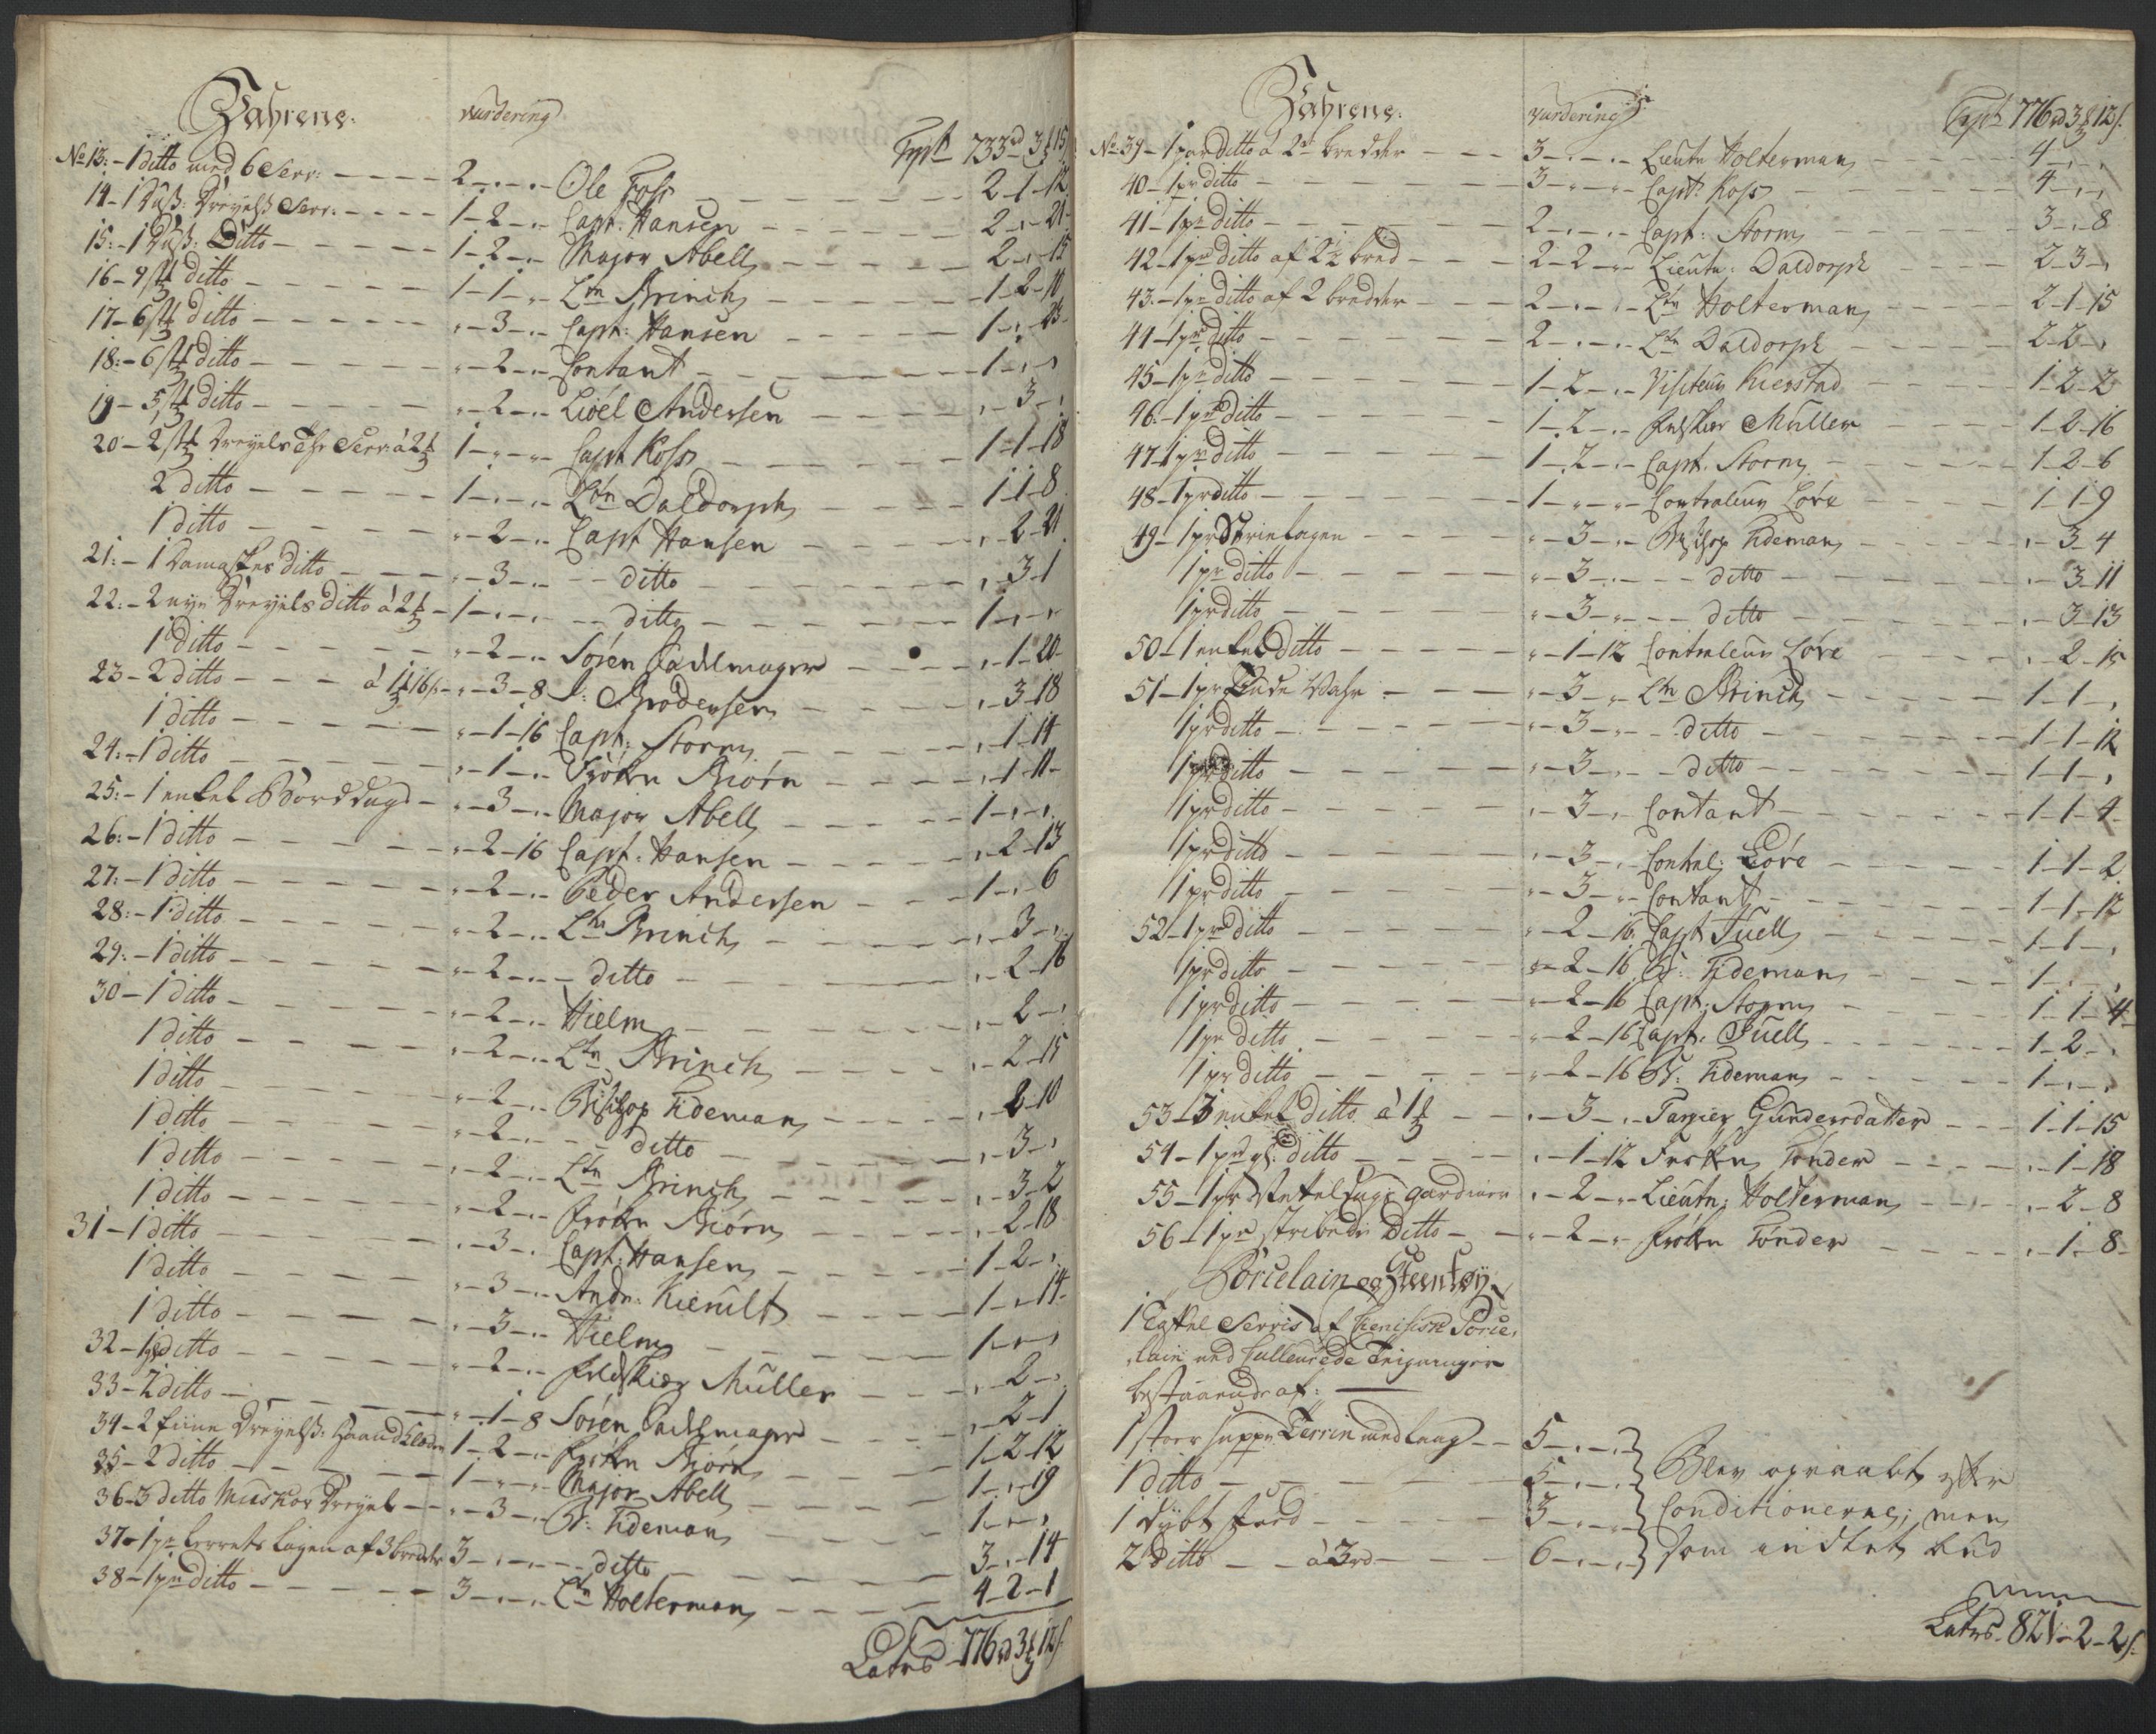 Vahrene. vurdering
Trpt 733rd 3 15
No 13: - 1 ditto med 6 Serv: - 2 - „ - „ Ole Foss 2 - 1 - 12
14 - 1 Duß: Dreyels Serv: - 1 - 2 - „ Capt: Hansen 2 - „ - 21
15: - 1 Duß: Ditto - 1 - 2 - „ Major Abell 2 - „ - 15
16 - 9 st ditto - 1 - 1 - „ Ltn Brinch 1 - 2 - 10
17 - 6 st ditto - „ - 3 - „ Capt: Hansen 1 - „ - 23
18: - 6 st ditto - „ - 2 - „ Contant 1 - „ - „
19 - 5 st ditto - „ - 2 - „ Lióel Andersen „ - 3 - „
20 - 2 st Dreyels Serv à 2 1 - „ - „ Capt Koss 1 - 1 - 18
2 ditto - 1 - „ - „ Ltn Daldorph 1 - 1 - 8
1 ditto - „ - 2 - „ Capt Hansen „ - 2 - 21
21: - 1 Damaskes ditto - „ - 3 - „ ditto „ - 3 - 1
22: - 2 nye Dreyels ditto à 2 - 1 - „ - „ ditto 1 - „ - „
1 ditto - „ - 2 - „ Sören Sadelmager „ - 1 - 20
23 - 2 ditto - à 1 16 s - „ - 3 - 8 Brodersen „ - 3 - 18
1 ditto - „ - 1 - 16 Capt: Storm „ - 1 - 14
24: - 1 ditto - „ - 1 - „ Fröken Biórn „ - 1 - 11
25: - 1 enkel Bord dug - „ - 3 - „ Major Abell 1 - „ - „
26: - 1 ditto - „ - 2 - 16 Capt: Hansen „ - 2 - 13
27: - 1 ditto - „ - 2 - „ Peder Andersen 1 - „ - 6
28: - 1 ditto - „ - 2 - „ Ltn Brinch „ - 3 - „
29: - 1 ditto - „ - 2 - „ ditto „ - 2 - 16
30 - 1 ditto - „ - 2 - „ Hielm „ - 2 - „
1 ditto - „ - 2 - „ Ltn Brinch „ - 2 - 15
1 ditto - „ - 2 - „ Bishop Tideman „ - 2 - 10
1 ditto - „ - 2 - „ ditto „ - 3 - „
1 ditto - „ - 2 - „ Ltn Brinch „ - 3 - 2
1 ditto - „ - 2 - „ Fröken Biórn „ - 2 - 18
31 - 1 ditto - „ - 3 - „ Capt: Hansen 1 - 2 - „
1 ditto - „ - 3 - „ Andr: Kierulf 1 - „ - 14
1 ditto - „ - 3 - „ Hielm 1 - „ - „
32 - 1 ditto - „ - 2 - „ Feldskiær Müller „ - 2 - „
33 - 2 ditto - „ - 1 - 8 Sören Sadelmager „ - 2 - 1
34 - 2 fiine Dreyelß: Haandklæder 1 - 2 - „ Fröken Biórn 1 - 2 - 12
35 - 2 ditto - 1 - „ - „ Major Abell 1 - „ - 19
36 - 3 ditto Muskov Dreyel - „ - 3 - „ B: Tideman 1 - „ - „
37 - 1 pr Lerrets Lagen af 3 bredder 3 - „ - „ ditto 3 - „ - 14
38 - 1 pr ditto - 3 - „ - „ Ltn Holterman 4 - 2 - 1
Latus 776 rd 3 12 s
Vahrene. vurdering
Trpt 776 rd 3 12 s.
No 39 - 1 par ditto a 2 bredder - 3 - „ - „ Lieutn Holterman 4 - „ - „
40 - 1 pr ditto - 3 - „ - „ Capt: Koss 4 - „ - „
41 - 1 pr ditto - 2 - „ - „ Capt: Storm 3 - „ - 8
42 - 1 pr ditto af 2½ bred - 2 - 2 - „ Lieutn: Daldorph 2 - 3 - „
43. - 1 pr ditto af 2 bredder - 2 - „ - „ Ltn Holterman 2 - 1 - 15
44 - 1 pr ditto - 2 - „ - „ Ltn Daldorph 2 - 2 - „
45 - 1 pr ditto - 1 - 2 - „ Visiteur Kierstad 1 - 2 - 2
46. - 1 pr ditto - 1 - 2 - „ Feldskier Müller 1 - 2 - 16
47 - 1 pr ditto - 1 - 2 - „ Capt. Storm 1 - 2 - 6
48 - 1 pr ditto - 1 - „ - „ Contraleur Lóve 1 - 1 - 9
49 - 1 pr Strielagen - „ - 3 - „ Bishop Tideman „ - 3 - 4
1 pr ditto - „ - 3 - „ ditto „ - 3 - 11
1 pr ditto - „ - 3 - „ ditto „ - 3 - 13
50 - 1 enkel ditto - „ - 1 - 12 Contraleur Lóve „ - 2 - 15
51 - 1 pr Pude Vahr - „ - 3 - „ Ltn Brinch 1 - 1 - „
1 pr ditto - „ - 3 - „ ditto 1 - 1 - 12
1 pr ditto - „ - 3 - „ ditto 1 - 1 - „
1 pr ditto - „ - 3 - „ Contant 1 - 1 - 4
1 pr ditto - „ - 3 - „ Contral: Lóve 1 - 1 - 2
1 pr ditto - „ - 3 - „ Contant 1 - 1 - 12
52 - 1 pr ditto - „ - 2 - 16 Capt Juell 1 - 1 - „
1 pr ditto - „ - 2 - 16 B: Tideman 1 - „ - „
1 pr ditto - „ - 2 - 16 Capt: Storm 1 - 1 - 4
1 pr ditto - „ - 2 - 16 Capt. Juell 1 - 2 - „
1 pr ditto - „ - 2 - 16 B: Tideman 1 - „ - „
53 - 3 enkel ditto à 1 - „ - 3 - „ Targier Gundersdatter 1 - 1 - 15
54 - 1 pr gl: ditto - „ - 1 - 12 Froken Tönder „ - 1 - 18
55 - 1 pr Gardiner „ - 2 - „ Lieutn: Holterman „ - 2 - 8
56 - 1 pr stribede Ditto - „ - 2 - „ Fröken Tönder „ - 1 - 8
Porcelain og Steentøy
1 Taffel Servis af Chenisisk Porce,
lain med Culleurede Teigninger
bestaaende af:
1 stoer suppe Terrin med laag - 5 - „ - „
1 ditto - 5 - „ - „ Blev opraabt efter
1 dybt fad - 3 - „ - „ Conditionerne; men
2 ditto - à 3 rd - 6 - „ - „ som indtet bud
Latus. 821 - 2 - 2 s.